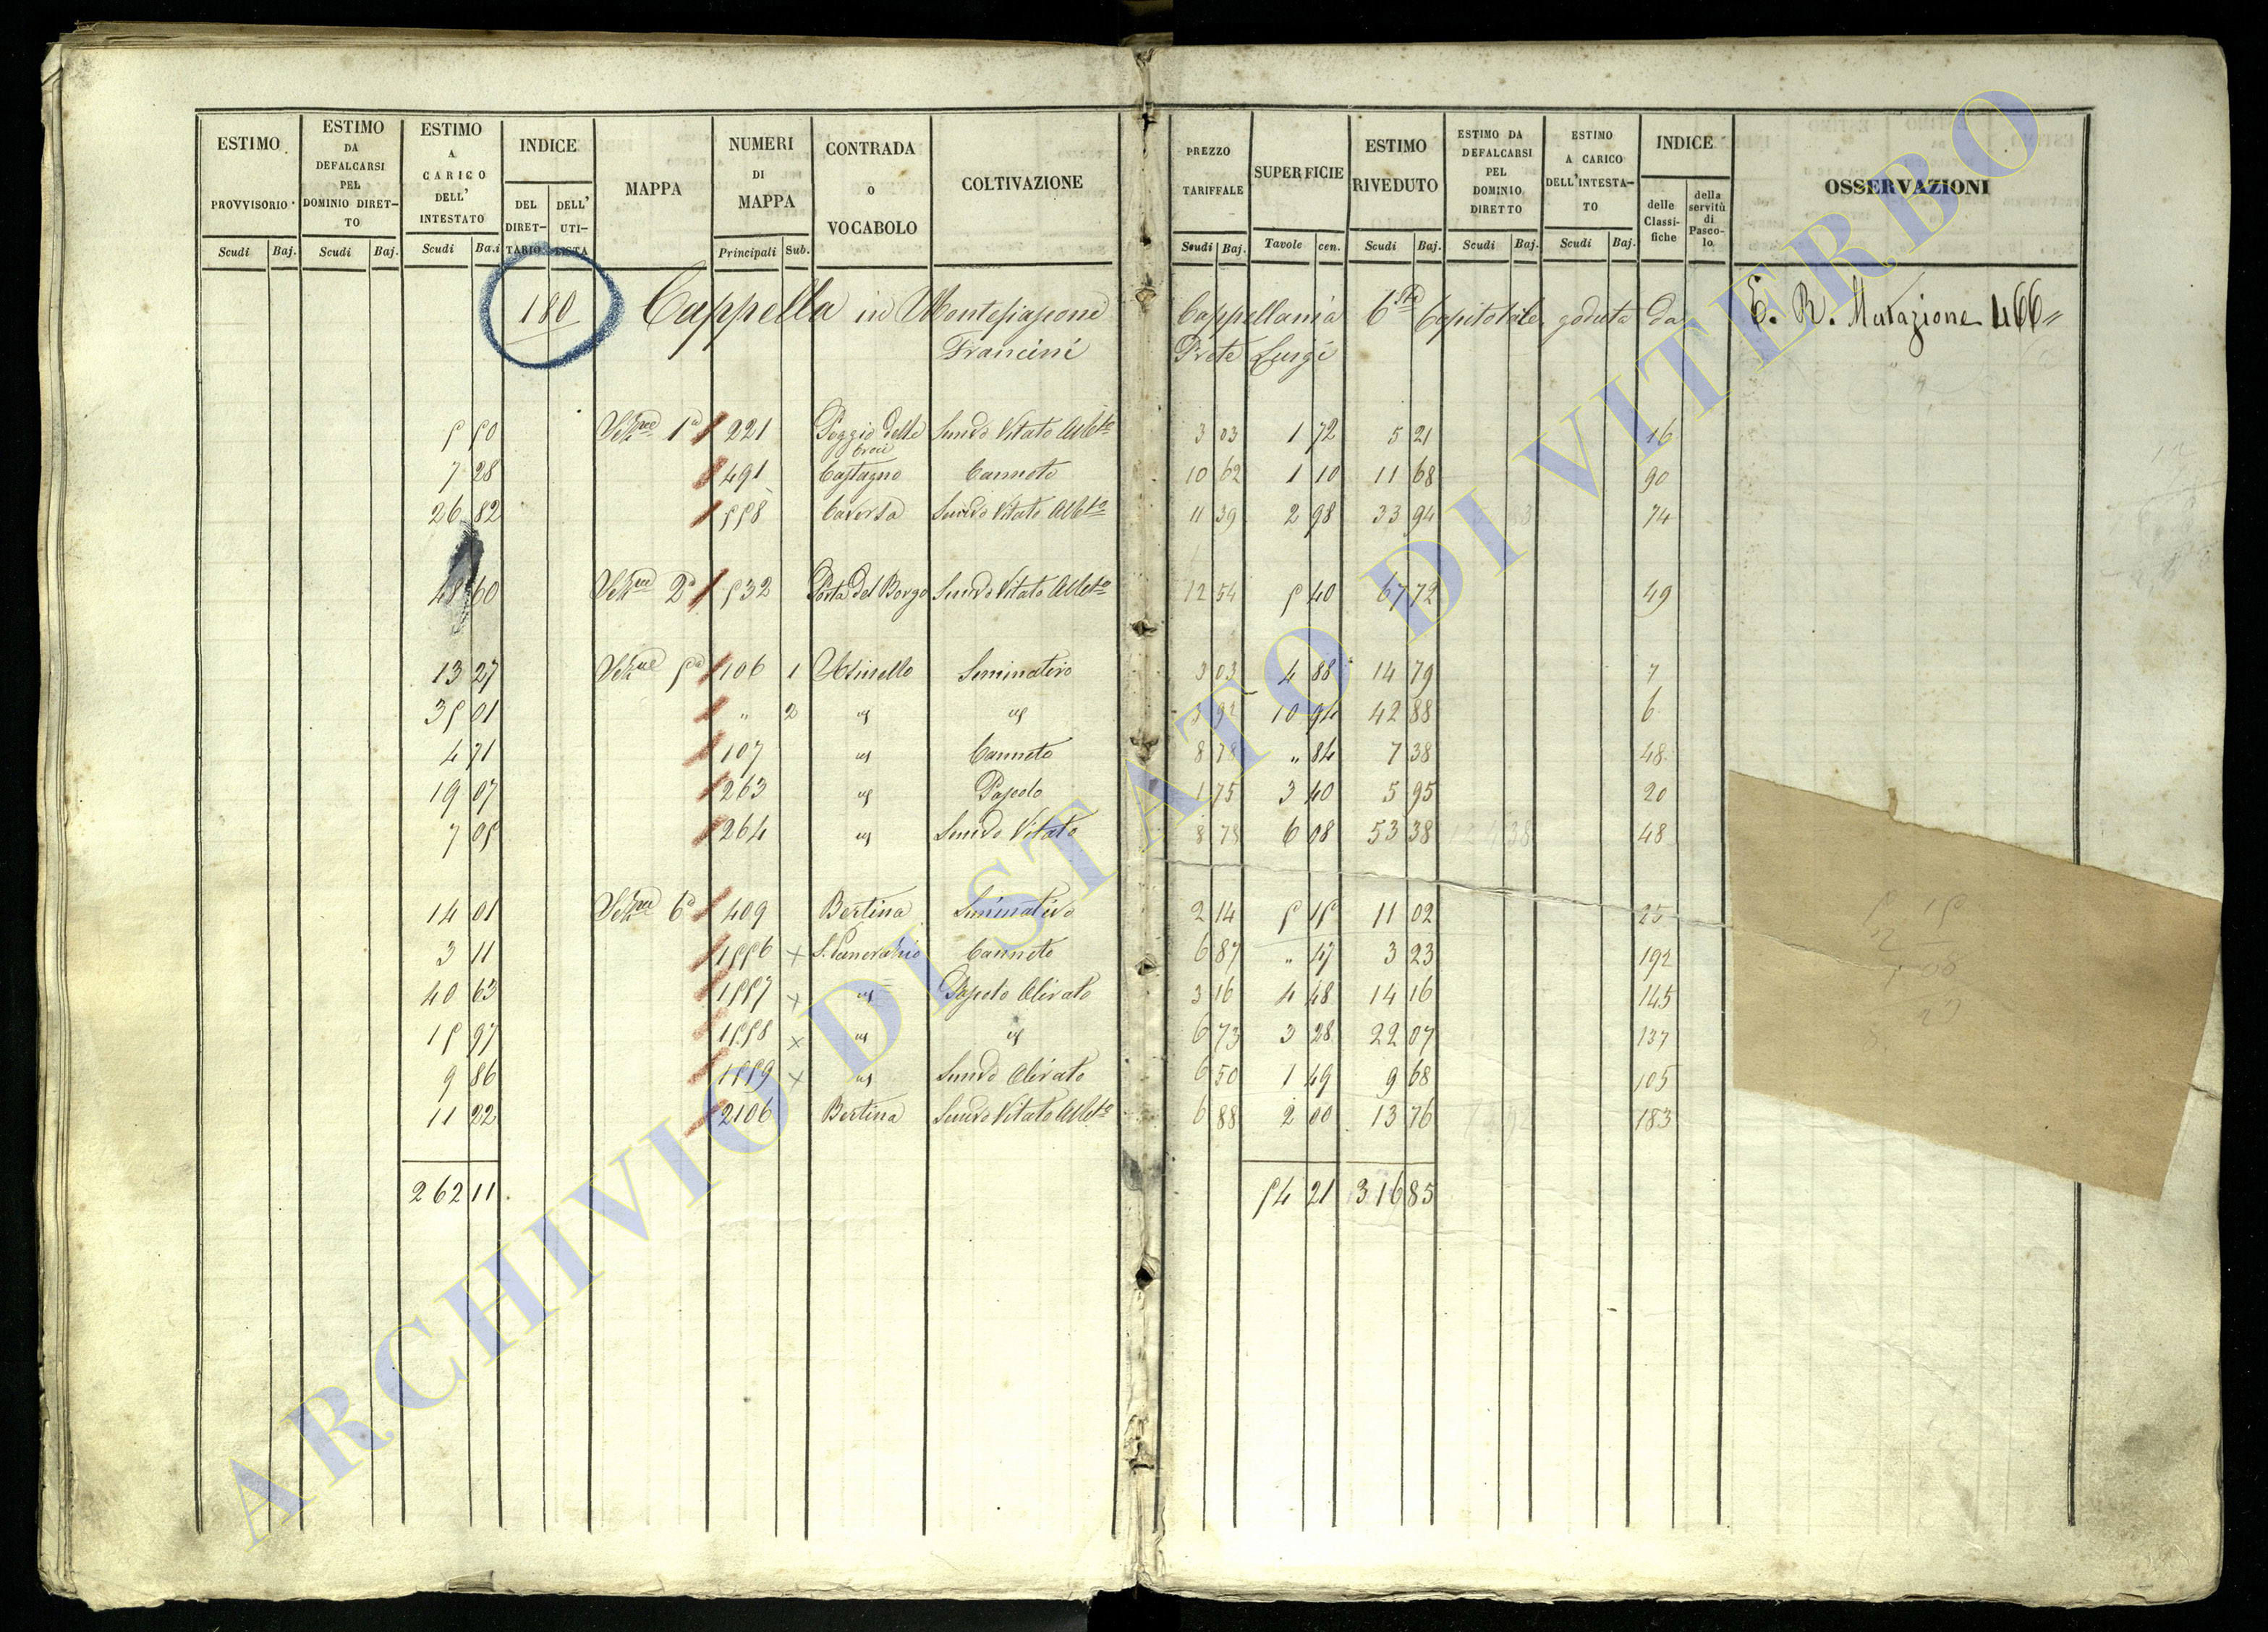 ESTIMO PROVVISORIO Scudi Baj.
ESTIMO DA DEFALCARSI PEL DOMINIO DIRET-TO Scudi Baj.
ESTIMO A CARICO DELL' INTESTATO Scudi Ba.i
INDICE DEL DIRET-TARIO DELL' UTI-LISTA
MAPPA
NUMERI DI MAPPA Principali Sub.
CONTRADA o VOCABOLO
COLTIVAZIONE
PREZZO TARIFFALE Scudi Baj.
SUPERFICIE Tavole cen.
ESTIMO RIVEDUTO Scudi Baj.
ESTIMO DA DEFALCARSI PEL DOMINIO DIRETTO Scudi Baj.
ESTIMO A CARICO DELL'INTESTA-TO Scudi Baj.
INDICE delle Classi-fiche della servitù di Pasco-lo
OSSERVAZIONI
180 Cappella in Montefiascone Cappellania 6sta Capitolare goduta da E. R. Mutazione 466 "
Francini Prete Luigi
5 50 Sezne 1a 221 Poggio delle Croci Semvo Vitato Albto 3 03 1 72 5 21 16
7 28 491 Castagno Canneto 10 62 1 10 11 68 90
26 82 558 Caversa Semvo Vitato Albto 11 39 2 98 33 94 74
48 60 Sezne 2a 532 Porta del Borgo Semvo Vitato Albto 12 54 5 40 67 72 49
13 27 Sezne 5a 106 1 Asinello Seminativo 3 03 4 88 14 79 7
35 01 " 2 id id 3 92 10 94 42 88 6
4 71 107 id Canneto 8 78 " 84 7 38 48
19 07 263 id Pascolo 1 75 3 40 5 95 20
7 05 264 id Semvo Vitato 8 78 6 08 53 38 48
14 01 Sezne 6a 409 Bertina Seminativo 2 14 5 15 11 02 25
3 11 1556 x S. Pancrazio Canneto 6 87 " 47 3 23 192
40 63 1557 x id Pascolo Olivato 3 16 4 48 14 16 145
15 97 1558 x id id 6 73 3 28 22 07 137
9 86 1559 x id Semvo Olivato 6 50 1 49 9 68 105
11 22 2106 Bertina Semvo Vitato Albto 6 88 2 00 13 76 183
262 11 54 21 316 85
ARCHIVIO DI STATO DI VITERBO